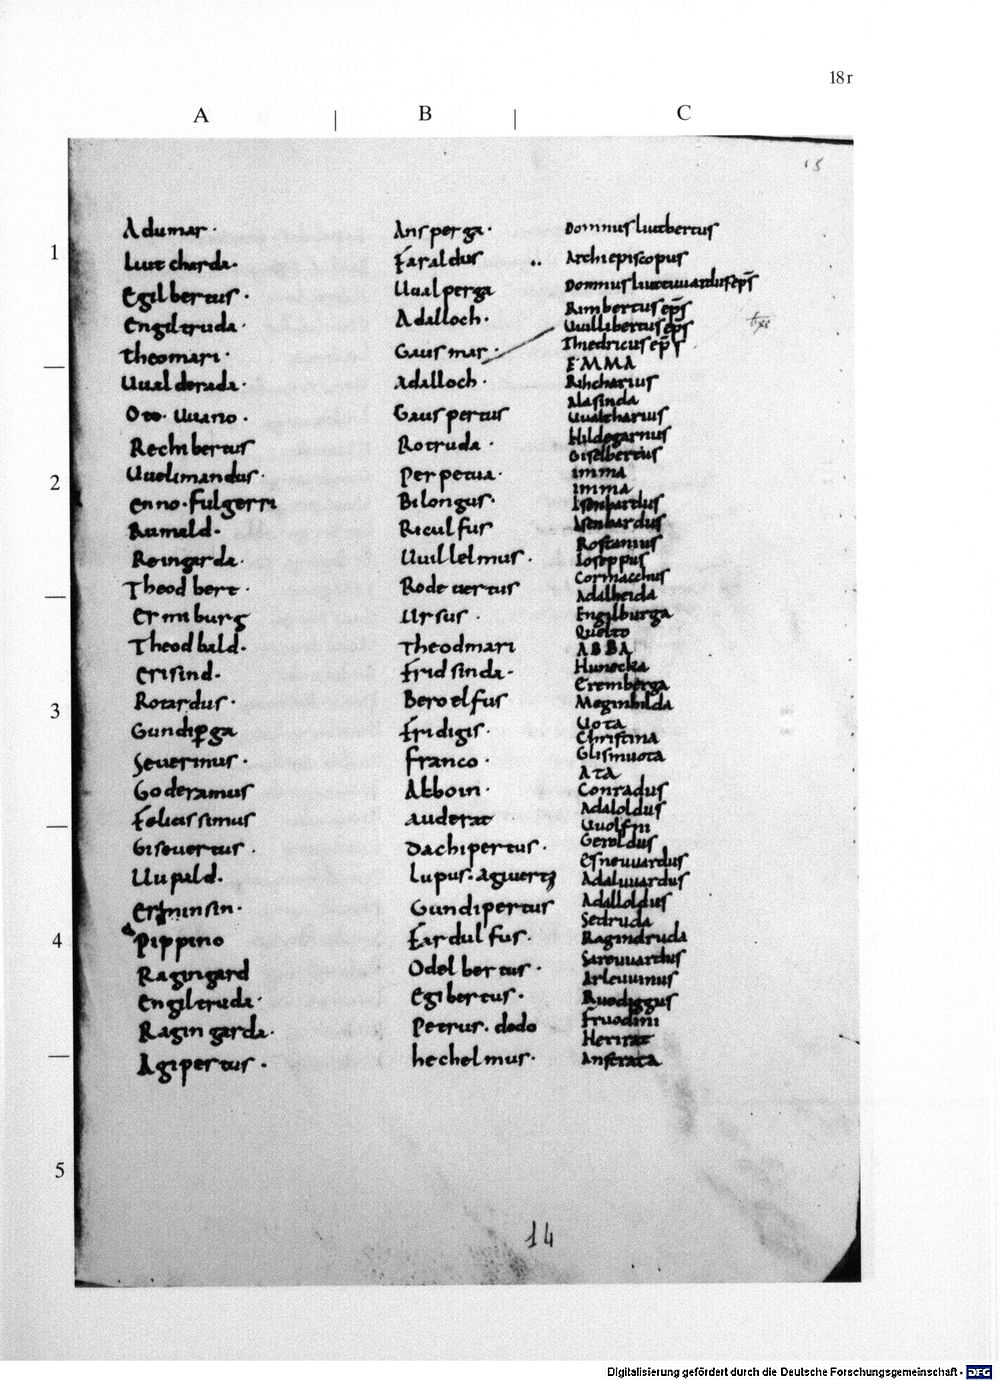 18r
A | B | C
15
1
2
3
4
5
Adumar·
Liutcharda·
Egilbertus·
Engiltruda·
Theomari·
Uualderada·
Oto· Uuano·
Rechibertus
Uuolimandus·
Enno·fulgerri
Rumald·
Reingarda·
Theodbert·
Erinburg
Theodbald·
Erisind·
Rotardus·
Gundip̱ga
Seuerinus·
Goderamus
Felicissimus
Giseuertus·
Uupald·
Erminsin·
Pippino
Ragingard
Engiltruda·
Ragingarda·
Agipertus·
Ansperga·
Faraldus
Uualperga
Adalloch·
Gausmar·
Adalloch·
Gauspertus
Rotruda·
Perpetua·
Bilongus·
Riculfus
Uuillelmus·
Rodeuertus
Ursus·
Theodmari
Fridsinda·
Beroelfus
Fridigis·
Franco·
Alboin·
Auderat
Dachipertus·
Lupus·
Gundipertus
Eardulfus·
Odelbertus·
Egibertus·
Petrus·dodo
hechelmus·
Domnus liutbertus
Archiepiscopus
Domnus liutuuardus ep̄s
Rimbertus ep̄s
Uuillibertus ep̄s
Thiedricus ep̄s
EMMA
Rihcharius
Alasinda
Uualtharius
Hildegarnus
Giselbertus
Imma
Imma
Isenbardus
Isenbardus
Rostanius
Ioseppus
Cormacchus
Adalheida
Engilburga
Quolto
ABBA
Hunecka
Eremberga
Meginhilda
Uota
Christina
Glismuota
ATA
Conradus
Adaloldus
Uuolfrii
Geroldus
Esneuuardus
Adaluuardus
Adalloldus
Sedruda
Ragindruda
Sareuuardus
Arleuuinus
Ruodiggus
Fruodini
Herirat
Anstrata
14
Digitalisierung gefördert durch die Deutsche Forschungsgemeinschaft · DFG